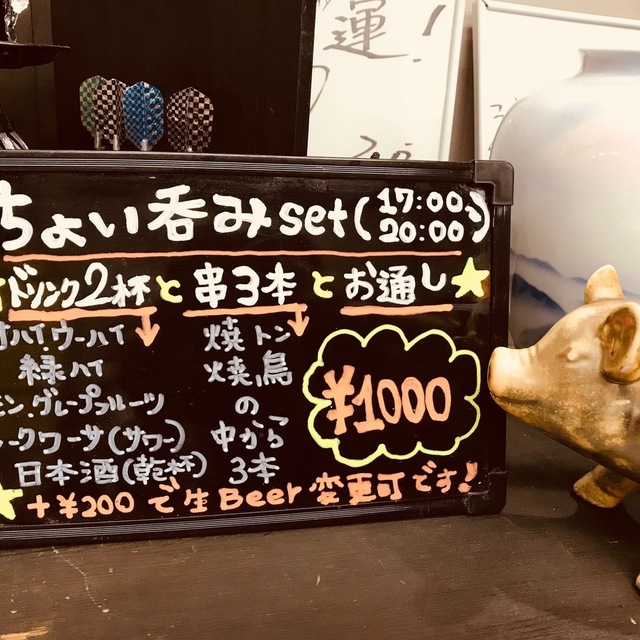 運!
ちょい呑みset(17:00〜20:00)
ドリンク2杯と串3本とお通し
ハイウーハイ
緑ハイ
ン.グレープフルーツ
ークワーサ(サワー)
日本酒(乾杯)
焼トン
焼鳥
の
中から
3本
¥1000
+¥200で生Beer変更可です!